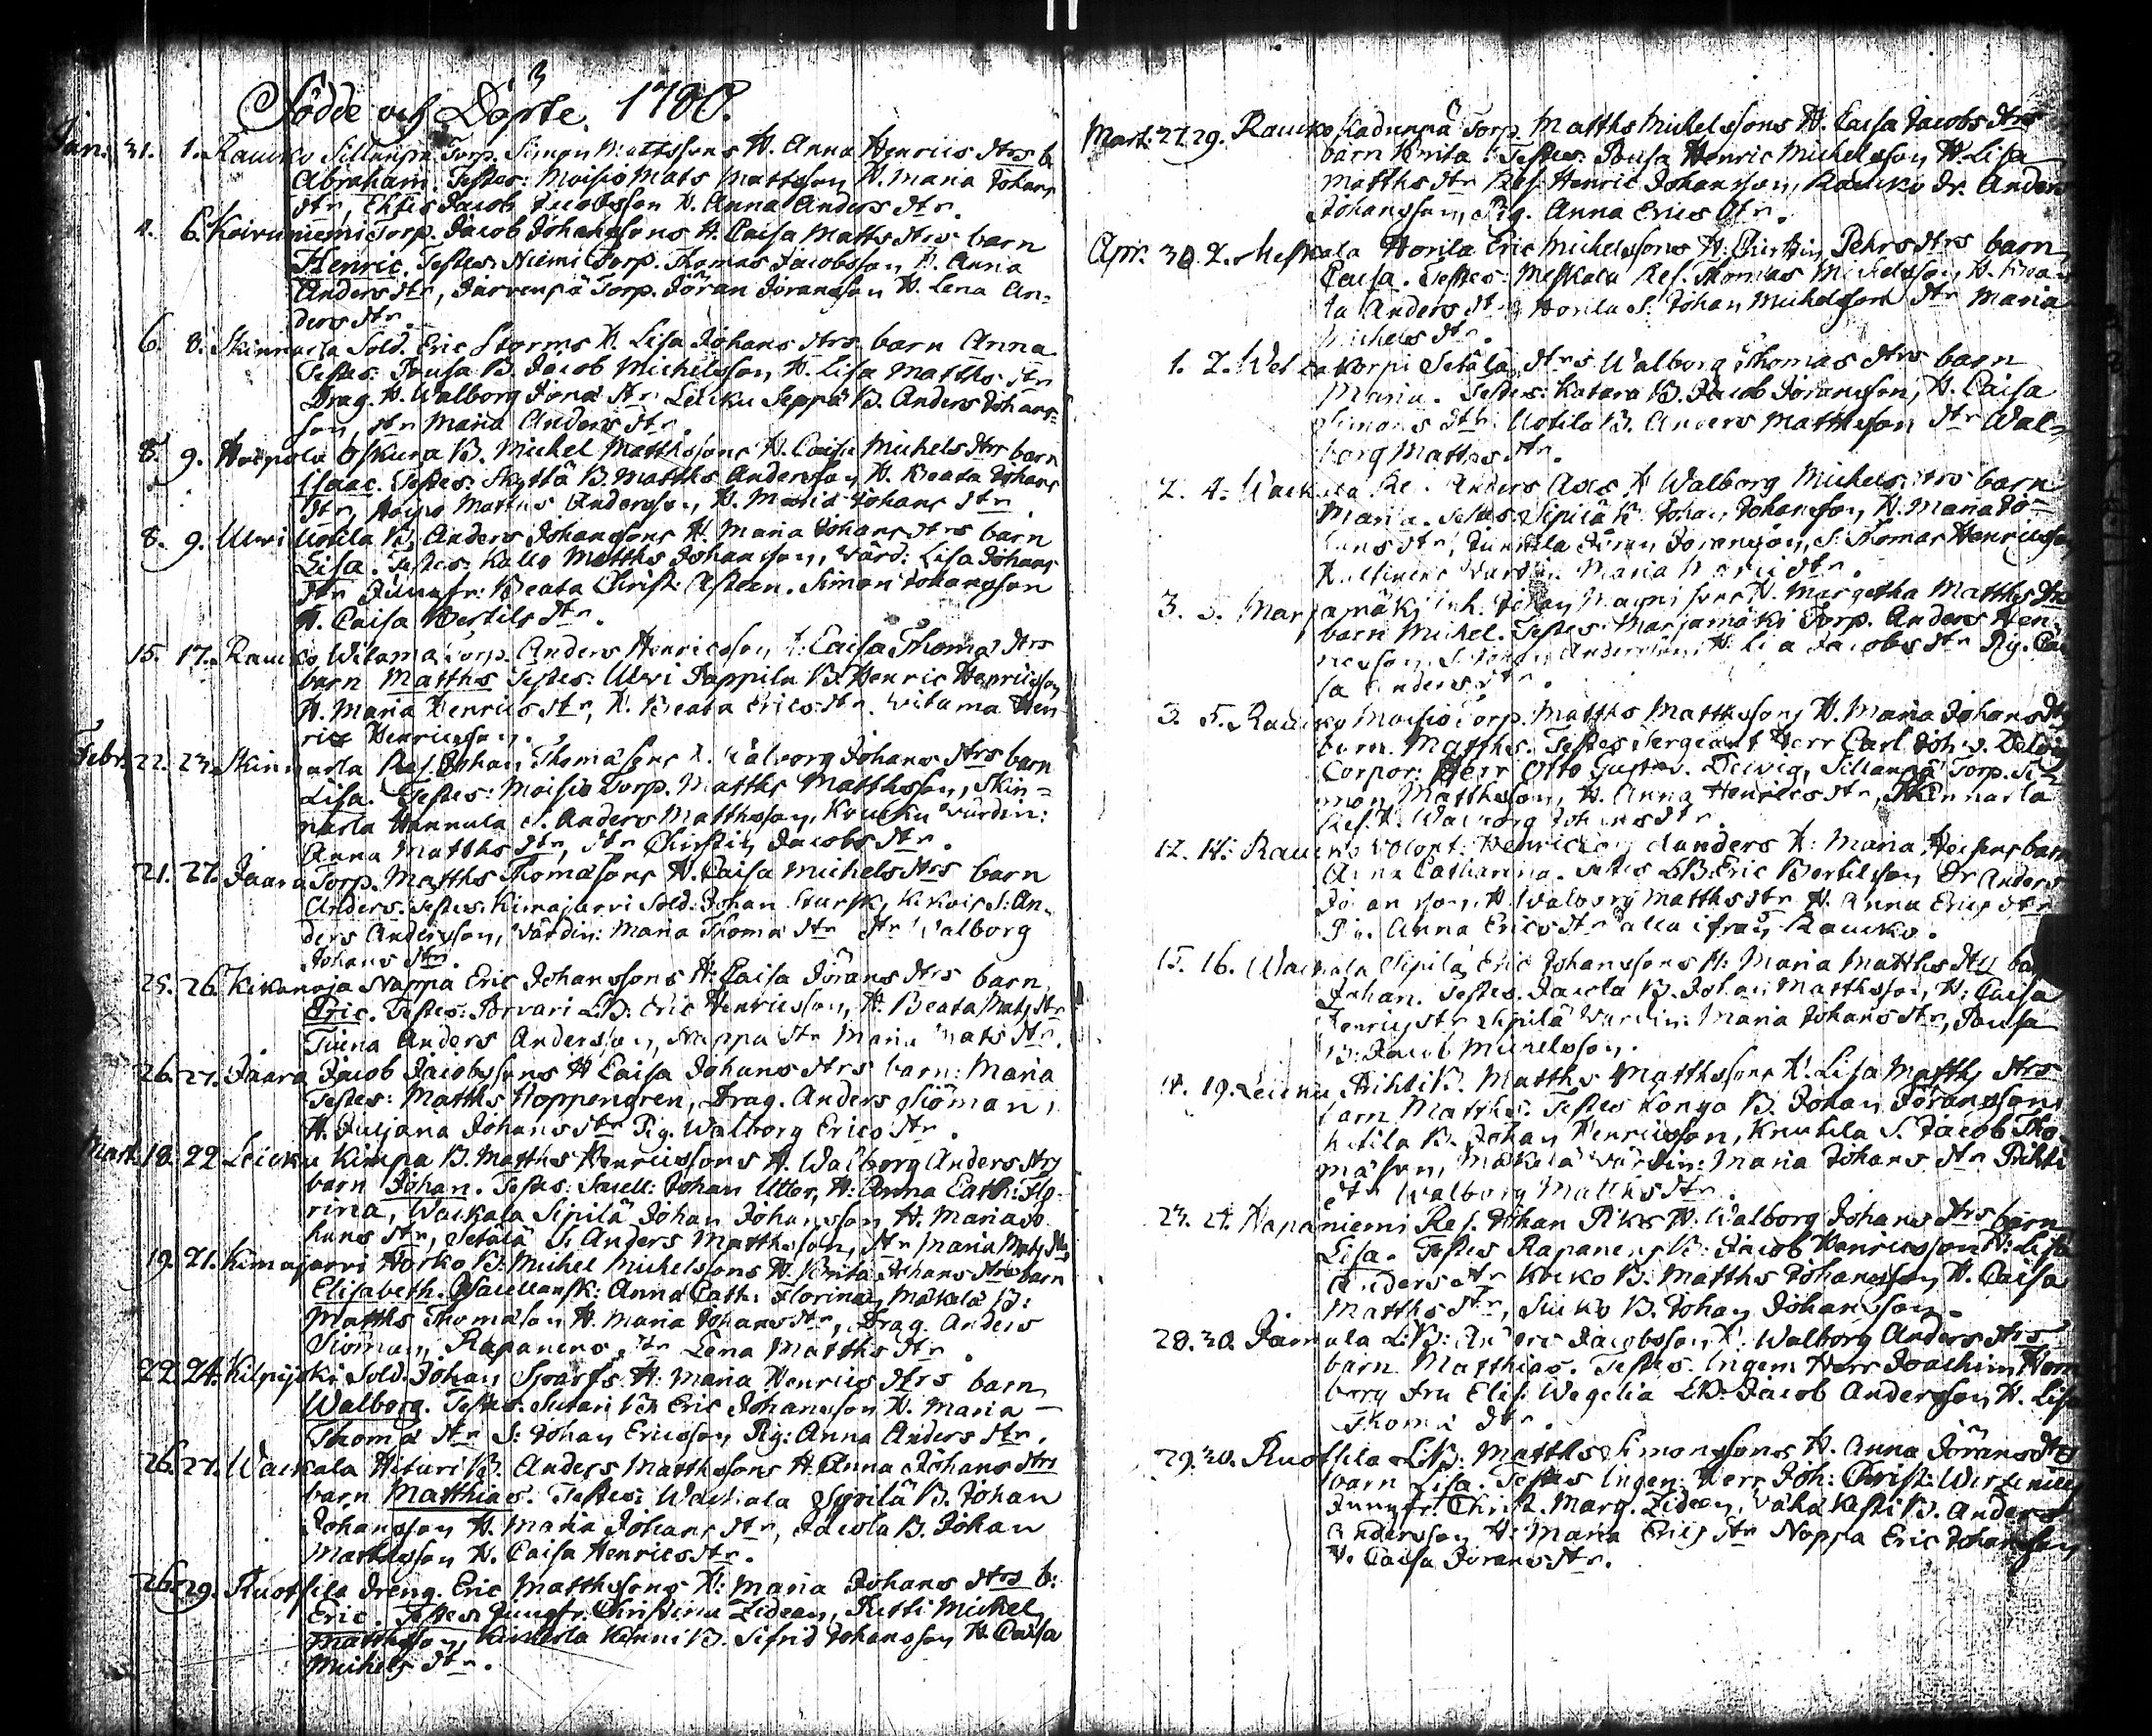 3
Födde och Döpte. 1780.
Jan. 31. 1. Raucko Sillanpä Torp. Simon Mattssons H. Anna Henrics dtrs b
Abraham. Testes: Moisio Mats Mattsson H. Maria Johans
dtr, Jacob Jacobsson H. Anna Anders dtr.
4. 6. Koiruniemi Torp. Jacob Johanssons H. Caisa Matts dtrs barn
Henric. Testes: Niemi Torp. Thomas Jacobsson H. Anna
Anders dtr, Järvenpä Torp. Jöran Jöransson H. Lena An-
ders dtr.
6. 8. Skinnarla Sold. Eric Storms H. Lisa Johans dtrs barn Anna
Testes: Pousa B. Jacob Michelsson, H. Lisa Matths dtr
Drag. H. Walborg Jöns dtr Leucku Seppä B. Anders Johans-
son, dtr Maria Anders dtr.
8. 9. Hoipola B. Michel Matthssons H. Caisa Michels dtrs barn
Isaac. Testes: Skyttä B. Matths Andersson H. Beata Johans
dtr, Matths Andersson, H. Maria Johans dtr
8. 9. Ulvi Uotila B. Anders Johanssons H. Maria Johans dtrs barn
Lisa. Testes: Kallo Matths Johansson, Värd: Lisa Johans
dtr Jungfr: Beata Christ: Asteen. Simon Johansson
H. Caisa Bertils dtr.
15. 17. Raucko Witama Torp. Anders Henricsson H. Caisa Thoma dtrs
barn Matths Testes: Ulvi Pappila B. Henric Henricsson
H. Maria Henrics dtr, H. Beata Erics dtr. Witama Hen
ric Henricsson.
Febr. 22. 23. Skinnarla Ref. Johan Thomasons H. Walborg Johans dtrs barn
Lisa. Testes: Moisio Torp. Matths Matthsson, Skin-
narla Hannula S. Anders Matthsson, Koucku värdin:
Anna Matths dtr, dtr Christin Jacobs dtr.
21. 27. Jaara Torp. Matths Thomasons H. Caisa Michels dtrs barn
Anders. Testes: Kimajarvi Sold. Johan Stursk, S. An-
ders Andersson, Värdin: Maria Thoma dtr dtr Walborg
Johans dtr.
25. 26. Kikanoja Nappa Eric Johanssons H. Caisa Jörans dtrs barn
Eric. Testes: Porvari LB: Eric Henricsson, H. Beata Mats dtr
Tiina Anders Andersson, Nappa dtr Maria Mats dtr.
26. 27. Jaara Jacob Jacobssons H Caisa Johans dtrs barn: Maria
Testes: Matths Hoppengren, Drag. Anders Siöman,
H. Juliana Johans dtr Pig. Walborg Erics dtr.
Mart. 18. 22 Leicku Kimpa B. Matths Henricssons H. Walborg Anders dtrs
barn Johan. Testes: Johan Utter, H: Anna Cath: Flo-
rina, Wackala Sipilä Johan Johansson, H. Maria Jo-
hans dtr, Setälä S. Anders Matthsson, dtr Maria Mats dtr
19. 21. Kimajarvi Horko B. Michel Michelssons H. Brita Johans dtrs barn
Elisabeth. Anna Cath: Florina, Mäkälä B:
Matths Thomason H. Maria Johans dtr, Drag. Anders
Siöman, Rapanens dtr Lena Matths dtr.
22. 24. Kilpijoki Sold. Johan H. Maria Henrics dtrs barn
Walborg. Testes: Sutari B. Eric Johansson H. Maria
Thoma dtr S: Johan Ericsson Pig: Anna Anders dtr.
26. 27. Wackala Hituri B. Anders Matthssons H. Anna Johans dtrs
barn Matthias. Testes: Wackala Sipilä B. Johan
Johansson H. Maria Johans dtr, Jacola B. Johan
Matthsson H. Caisa Henrics dtr.
26. 29. Ruotsila Dreng. Eric Matthssons H: Maria Johans dtrs b:
Eric. Testes: Jungfr. Christina Zidean, Michel
Matthsson, B. Sifrid Johansson H. Caisa
Michels dtr.
Mart: 27. 29. Raucko Torp. Matths Michelssons H. Caisa Jacobs dtrs
barn Brita. Testes: Pousa Henric Michelsson H. Lisa
Matths dtr Ref. Henric Johansson, Raucko Dr. Anders
Johansson, Pig. Anna Erics dtr.
Apr: 30. 2. Meskala Horila Eric Michelssons H. Christin Pehrs dtrs barn
Caisa. Testes: Meskala Ref. Thomas Michelsson H.
Anders dtr Horila S: Johan Michelsson dtr Maria
Michels dtr.
1. 2. Setälä dtrs Walborg Thomas dtrs barn
Maria. Testes: Katara B. Jacob Jöransson, H. Caisa
Simons dtr Uotila B. Anders Matthsson dtr Wal-
borg Matths dtr.
2. 4. Wackala Ref. Anders H Walborg Michels dtrs barn
Maria. Testes: Sipilä B. Johan Johansson, H. Maria Jo-
hans dtr, Junnila Jöran Jöransson, S. Thomas Henricsson
Värdin. Maria dtr.
3. 5. Marjamäki Inh. Johan H. Margetha Matths dtrs
barn Michel. Testes: Marjamäki Torp. Anders Hen-
ricsson, S. Johan Andersson, H. Lisa Jacobs dtr Pig. Cai
sa Anders dtr.
3. 5. Raucko Moisio Torp. Matths Matthssons H. Maria Johans dtrs
barn Matths. Testes Sergeant Herr Carl Joh: Delvig
Corpor: Herr Otto Gustav. Delvig, Sillanpä Torp. Si-
mon Matthsson, H. Anna Henrics dtr, Skinnarla
Ref. H. Walborg Johans dtr.
12. 14. Raucko Volont: Henric H: Maria barn
Anna Catharina. Testes LB. Eric Bertilsson Dr Anders
Johansson, H. Walborg Matths dtr H. Anna Erics dtr
Pig. Anna Erics dtr alla ifrån Raucko.
15. 16. Wackala Sipilä Eric Johanssons H: Maria Matths dtrs barn
Johan. Testes. Jacola B. Johan Matthsson, H: Caisa
Henrics dtr Sipilä Värdin: Maria Johans dtr, Pousa
B: Jacob Michelsson.
19. B. Matths Matthssons H. Lisa Matths dtrs
barn Matths. Testes Konga B. Johan Jöransson
B. Johan Henricsson, Knutila S. Jacob Tho-
mason, Mäkelä Värdin: Maria Johans dtr
dtr Walborg Matths dtr.
23. 24. Hapaniemi Ref. Johan Piks H. Walborg Johans dtrs barn
Lisa. Testes Rapanens B: Jacob Henricsson H: Lisa
Anders dtr B. Matths Johansson H. Caisa
Matths dtr, B. Johan Johansson.
28. 30. L:B: Anders Jacobsson H: Walborg Anders dtrs
barn Matthias. Testes. Ingen: Herr Joachim
berg Fru Elis: Wegelia LB: Jacob Andersson, H. Lisa
Thoma dtr.
29. 30. Ruotsila LB: Matths Simonssons H. Anna Jörans dtrs
barn Lisa. Testes Ingen: Herr Joh: Christ:
Jungfr. Christ. Marg. Zidean, B. Anders
Andersson H: Maria Erics dtr Nappa Eric Johansson
H. Caisa Jörans dtr.